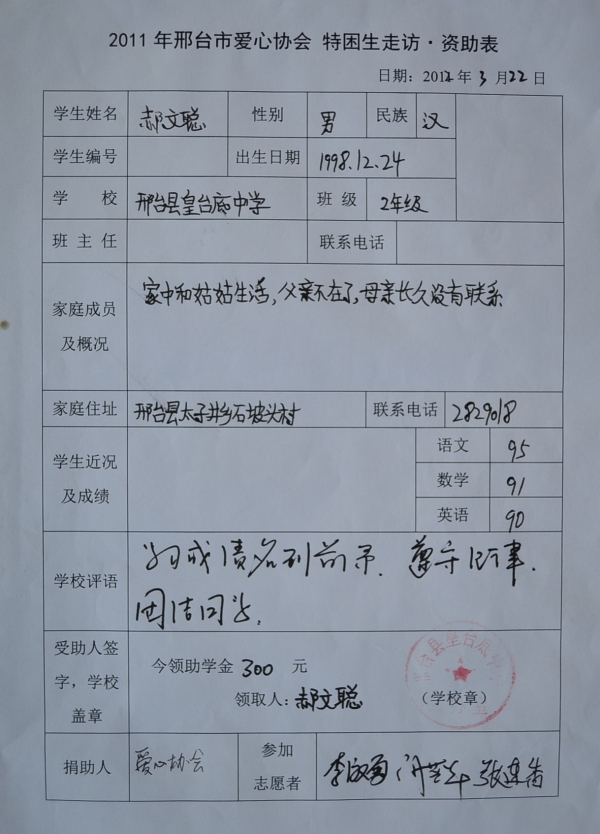 2011年邢台市爱心协会 特困生走访·资助表
日期：2012年3月22日
学生姓名 郝文聪 性别 男 民族 汉
学生编号 出生日期 1998.12.24
学校 邢台县皇台底中学 班级 2年级
班主任 联系电话
家庭成员及概况 家中和姑姑生活，父亲不在了，母亲长久没有联系
家庭住址 邢台县太子井乡石坡头村 联系电话 2829018
学生近况及成绩
语文 95
数学 91
英语 90
学校评语 学习成绩名列前茅．遵守纪律．
团结同学．
受助人签字，学校盖章
今领助学金 300 元
领取人：郝文聪 （学校章）
捐助人 爱心协会 参加志愿者